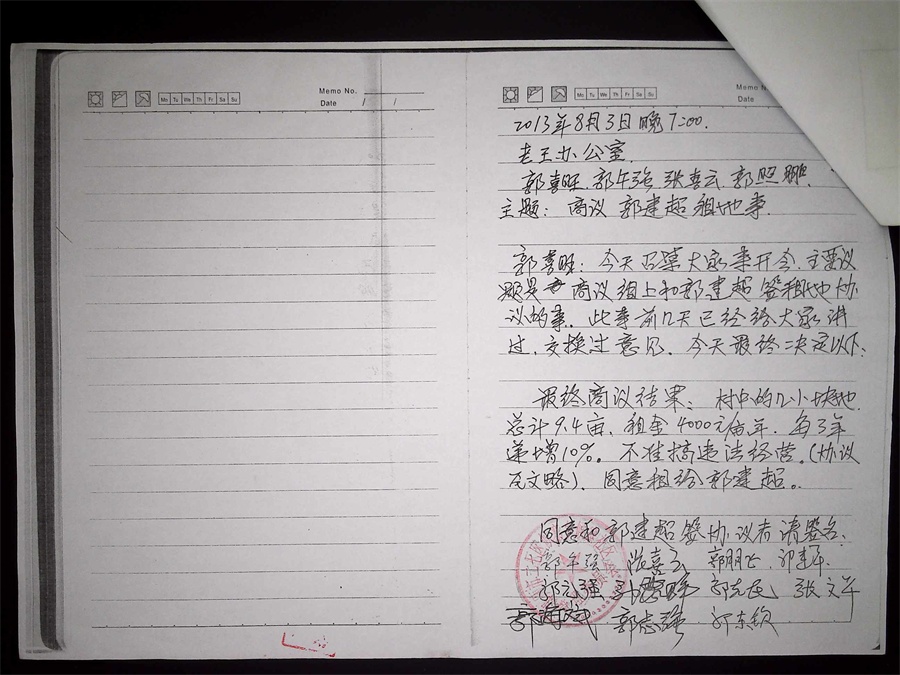 Memo No.
Date / /
Mo Tu We Th Fr Sa Su
Mo Tu We Th Fr Sa Su
Memo N
Date
2013年8月3日晚7:00.
老王办公室.
郭喜旺.郭午强 张喜云.郭照鹏.
主题: 商议 郭建超租地事.
郭喜旺: 今天召集大家来开会.主要议
题是 商议组上和郭建超签租地协
议的事. 此事前几天已经给大家讲
过.交换过意见. 今天最终决定以下:
最终商议结果: 村中的几小块地.
总计9.4亩. 租金4000元亩年. 每3年
递增10%。不准搞违法经营。(协议
原文略). 同意租给郭建超。
同意和郭建超签协议者请签名:
郭午强 张喜云 郭朋飞
郭元强 张文军
郭志强 郭东钦